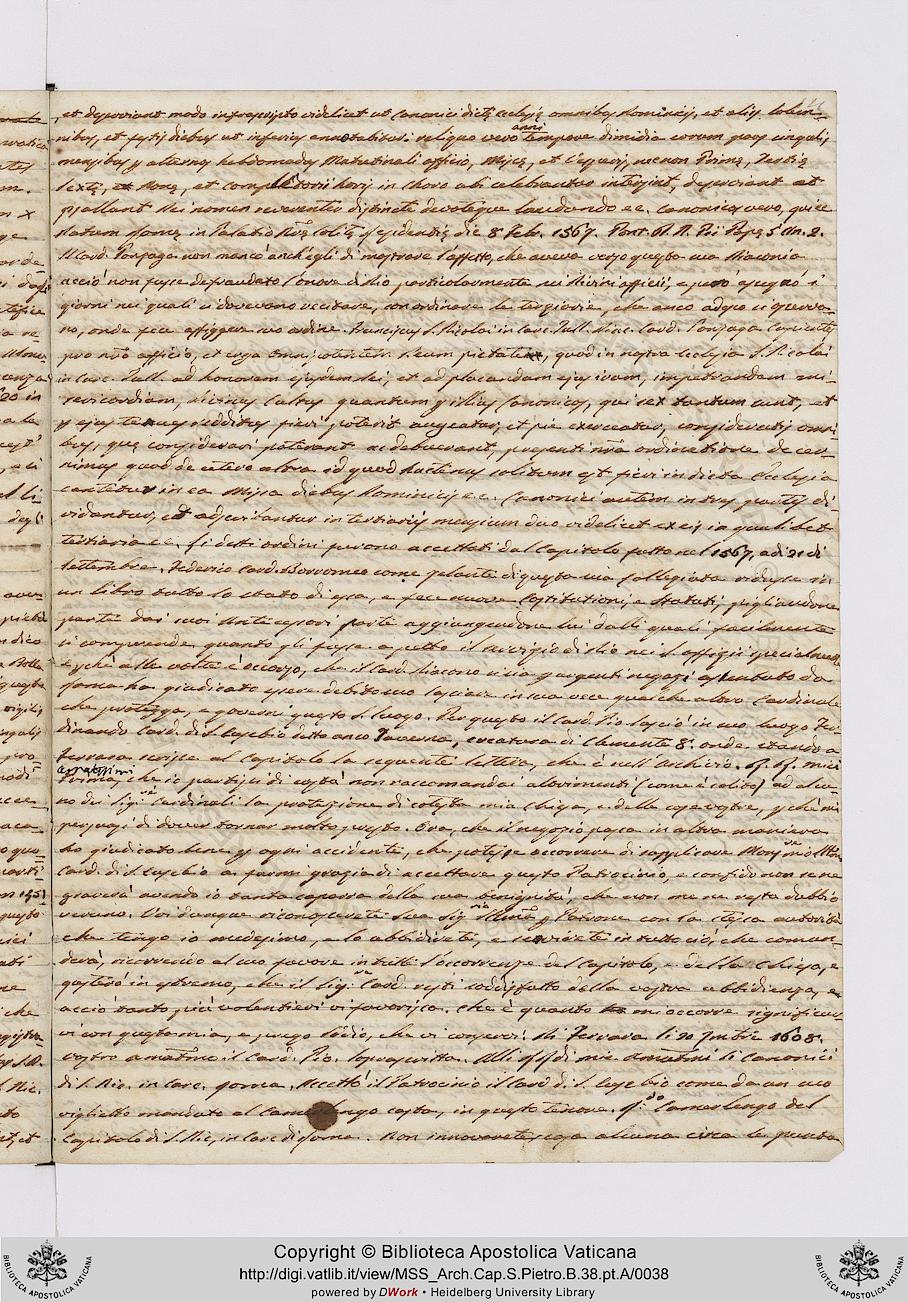 et deserviant modo infrascripto videlicet ut Canonici dictę ecclesię omnibus Dominicis, et aliis solem=
nibus, et festis diebus ut inferius annotabitur: reliquo vero anni tempore dimidia eorum pars singulis
mensibus per alternas hebdomadas Matutinali officio, Missę, et Vesperis, necnon Primę, Tertię
Sextę, et Nonę, et completorii horis in Choro ubi celebrantur intersint, deserviant et
psallant Dei nomen reverenter distincte devoteque laudando ec. Canonicus vero, qui ec.
Datum Romę in Palatio Nrę solitę residentię die 8 Febr. 1567. Pont. S. N. Pii Papę 5 An. 2.
Il Card. Gonzaga non mancò anch'egli di mostrare l'affetto, che aveva verso questa sua Diaconia
acciò non fusse defraudato l'onore di Dio particolarmente nei Divini officii, e però assegnò i
giorni nei quali si dovevano recitare, con ordinare le terziarie, che anco adesso si osserva=
no, onde fece affiggere suo ordine. Franciscus S. Nicolai in Carc. Tull. Diac. Card. Gonzaga Cupientes
pro nrō officio, et erga Omnipotentem Deum pietate, quod in nostra Ecclesia S. Nicolai
in Carc. Tull. ad honorem eiusdem Dei, et ad placandam eius iram, impetrandam mi=
sericordiam, divinus Cultus quantum per illius Canonicos, qui sex tantum sunt, et
per eius tenues redditus fieri poterit augeatur, et pie exerceatur, consideratis omni=
bus, quę considerari poterant ac debuerant, presenti nrā ordinatione decer=
nimus quod de cetero ultra id quod hactenus solitum est fieri in dicta Ecclesia
cantetur in ea Missa diebus Dominicis ec. Canonici autem in tres partes di=
vidantur, et adscribantur in tertiariis mensium duo videlicet ex eis in qualibet
tertiaria ec. Li detti ordini furono accettati dal Capitolo fatto nel 1567, adi 21 di
Settembre. Federico Card. Borromeo come zelante di questa sua Collegiata ridusse in
un libro tutto lo stato di essa, e fece nuove Costitutioni, e Statuti, pigliandone
parte dai suoi Antecessori parte aggiungendone lui dalli quali facilmente
si comprende quanto gli fusse a petto il servizio di Dio nei S. Offizii specialmen=
te, perchè alle volte è occorso, che il Card. Diacono sia per urgenti negozi assentato da
Roma ha giudicato essere debito suo lasciare in sua vece qualche altro Cardinale
che protegga, e governi questo S. luogo. Per questo il Card. Pio lasciò in suo luogo Fer=
dinando Card. di S. Eusebio detto anco Taverna, creatura di Clemente 8.º onde stando a
Ferrara scrisse al Capitolo la seguente lettera, che è nell'archivio. Sf. Sf. miei
amatissimi
Prima, che io partissi di costà non raccomandai altrimenti (come è solito) ad alcu=
no dei Sig.ri Cardinali la protezione di cotesta mia Chiesa, e delle cose vostre, perchè mi
persuasi di dover tornar molto presto. Ora, che il negozio passa in altra maniera
ho giudicato bene per ogni accidente, che potesse occorrere di supplicare Monsig.re mio Illmo
Card. di S. Eusebio a farmi grazia di accettare questo Patrocinio, e confido non se ne
graverà avendo io tanta caparra della sua benignità, che non me ne resta dubbio
veruno. Voi dunque riconoscerete Sua Sig.ria Illma per Patrone con la stessa autorità
che tengo io medesimo, e lo ubbidirete, e servirete in tutto ciò, che coman=
derà, ricorrendo al suo favore in tutte l'occorrenze del Capitolo, e della Chiesa, e
gusterò in estremo, che il Sig.re Card. resti soddisfatto della vostra ubbidienza, e
acciò tanto più volentieri vi favorisca. Che è quanto mi occorre significar=
vi con questa mia, e prego Iddio, che vi conservi. Di Ferrara li 20 Xmbre 1608.
Vostro amatmo il Card. Pio. Soprascritta. Alli Sf. Sf. di mie amatmi li Canonici
di S. Nic. in Carc. Roma. Accettò il Patrocinio il Card. di S. Eusebio come da un suo
viglietto mandato al Camerlengo costa, in questo tenore. S.do Camerlengo del
Capitolo di S. Nic. in Carc. di Roma. Non innovarete cosa alcuna circa le puntat
Copyright © Biblioteca Apostolica Vaticana
http://digi.vatlib.it/view/MSS_Arch.Cap.S.Pietro.B.38.pt.A/0038
powered by DWork • Heidelberg University Library
BIBLIOTECA APOSTOLICA VATICANA
BIBLIOTECA APOSTOLICA VATICANA